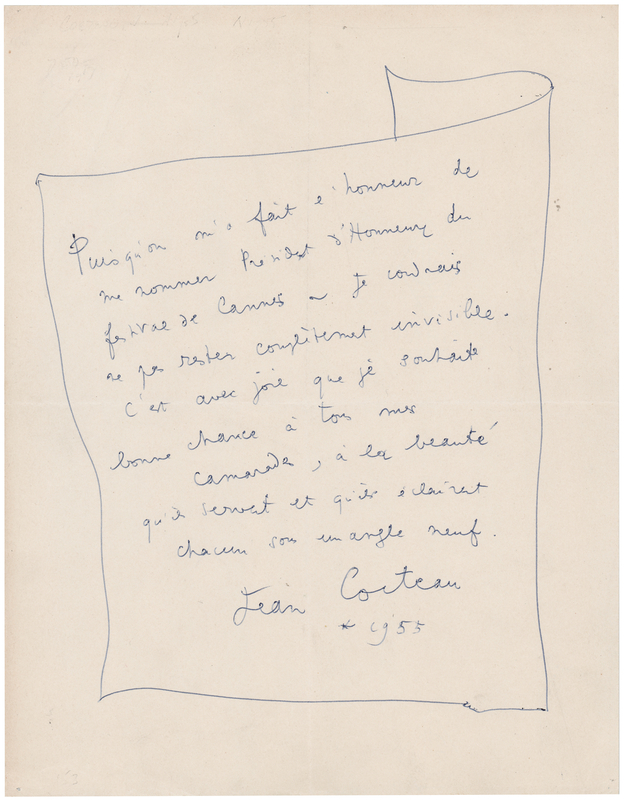 Puisqu'on m'a fait l'honneur de
me nommer Président d'Honneur du
festival de Cannes ~ je voudrais
ne pas rester complètement invisible.
C'est avec joie que je souhaite
bonne chance à tous mes
camarades, à la beauté
qu'ils servent et qu'ils éclairent
chacun sous un angle neuf.
Jean Cocteau
* 1955